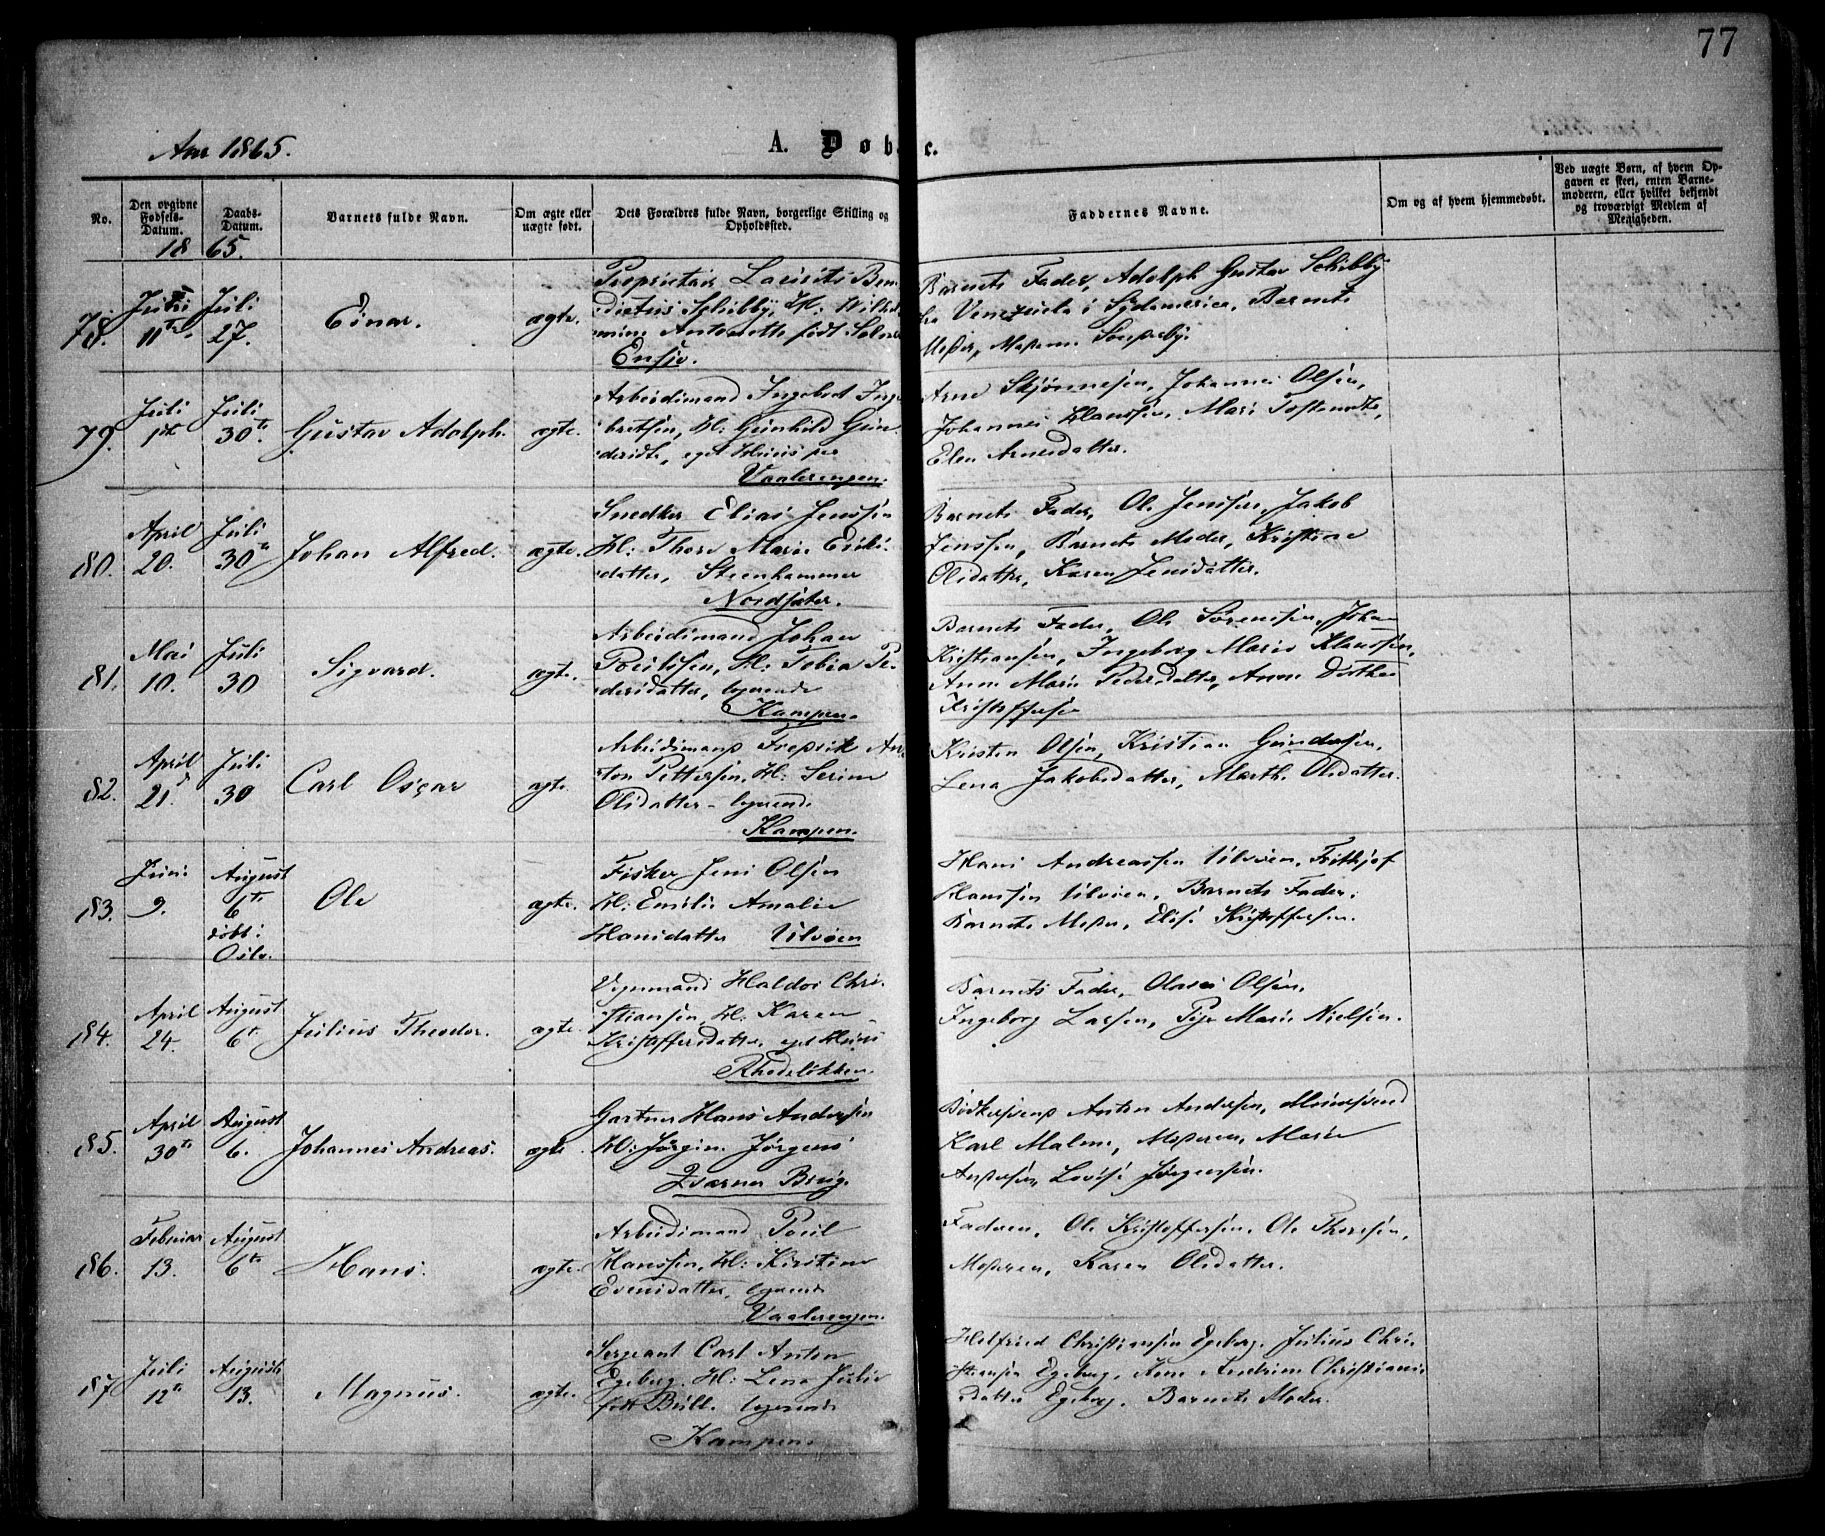 77
Aar 1865.
A. Døbte.
No.
Den opgivne Fødsels-Datum.
Daabs-Datum.
Barnets fulde Navn.
Om ægte eller uægte født.
Dets Forældres fulde Navn, borgerlige Stilling og Opholdssted.
Faddernes Navne.
Om og af hvem hjemmedøbt.
Ved uægte Børn, af hvem Opgaven er skeet, enten Barnemoderen, eller hvilket bekjendt og troværdigt Medlem af Menigheden.
18 65.
78. 11te Juli 27. Einar. ægte.
Proprietair Laurits Bene
dictus Schibby, H: Wilhel
mine Antonette født
Ensjø.
Barnets Fader, Adolph Gustav Schibby
fra Venezuela i Sydamerica, Barnets
Moder,
79. Juli 1ste Juli 30te. Gustav Adolph. ægte.
Arbeidsmand Ingebret Inge
bretsen, H: Gunhild Gun
dersdtr, eget Huus paa
Vaalerengen.
Arne Skjønnesen, Johannes Olsen,
Johannes Hanssen, Mari
Elen Arnesdatter.
80. April 20. Juli 30te Johan Alfred. ægte.
Snedker Elias Jenssen
H: Thore Marie Eriks
datter, Steenhammer
Nordsæter.
Barnets Fader, Ole Jenssen, Jakob
Jenssen, Barnets Moder, Kristine
Olsdatter, Karen Jensdatter.
81. Mai 10. Juli 30 Sigvard. ægte.
Arbeidsmand Johan
Poulssen, H: Tobia Pe
dersdatter, logerende
Kampen.
Barnets Fader, Ole Sørenssen, Johan
Kristiansen, Ingeborg Marie Klaussen,
Anne Marie Pedersdatter, Anne Dorthea
Kristoffersen
82. April 21. Juli 30 Carl Oscar ægte
Arbeidsmand Fredrik An
ton Pettersen, H: Serine
Olsdatter - logerende
Kampen.
Kristen Olsen, Kristian Gundersen,
Lena Jakobsdatter, Marthe Olsdatter.
83. Juni 9. August 6te døbt i Oslo. Ole ægte.
Fisker Jens Olsen
H: Emilie Amalie
Hansdatter Ulvøen
Hans Andreassen Ulvøen, Frithjof
Hanssen Ulvøen, Barnets Fader,
Barnets Moder, Elise Kristoffersen.
84. April 24. August 6te Julius Theodor. ægte.
Vognmand Haldor Chri
stiansen, H: Karen
Kristoffersdatter, eget Huus
Rhodeløkken.
Barnets Fader, Olaves Olsen,
Ingeborg Larsen, Pige Marie Nielsen.
85. April 30te August 6. Johannes Andreas. ægte.
Gartner Hans Andersen
H: Jørgine Jørgens
Qværner Brug.
Bødkersvend Anton Andersen, Muursvend
Karl Malme, Moderen, Marie
Andersen, Lovise Jørgensen.
86. Februar 13. August 6te Hans. ægte.
Arbeidsmand Poul
Hanssen, H: Kirstine
Evensdatter, logerende
Vaalerengen.
Faderen, Ole Kristoffersen, Ole Thoresen,
Moderen, Karen Olsdatter.
87. Juli 12te August 13. Magnus. ægte.
Sergeant Carl Anton
Egeberg, H: Lena Julie
født Bull. logerende
Kampen.
Helfried Christiansen Egeberg, Julius Chri
stiansen Egeberg, Anne Andrine Christians
datter Egeberg, Barnets Moder.